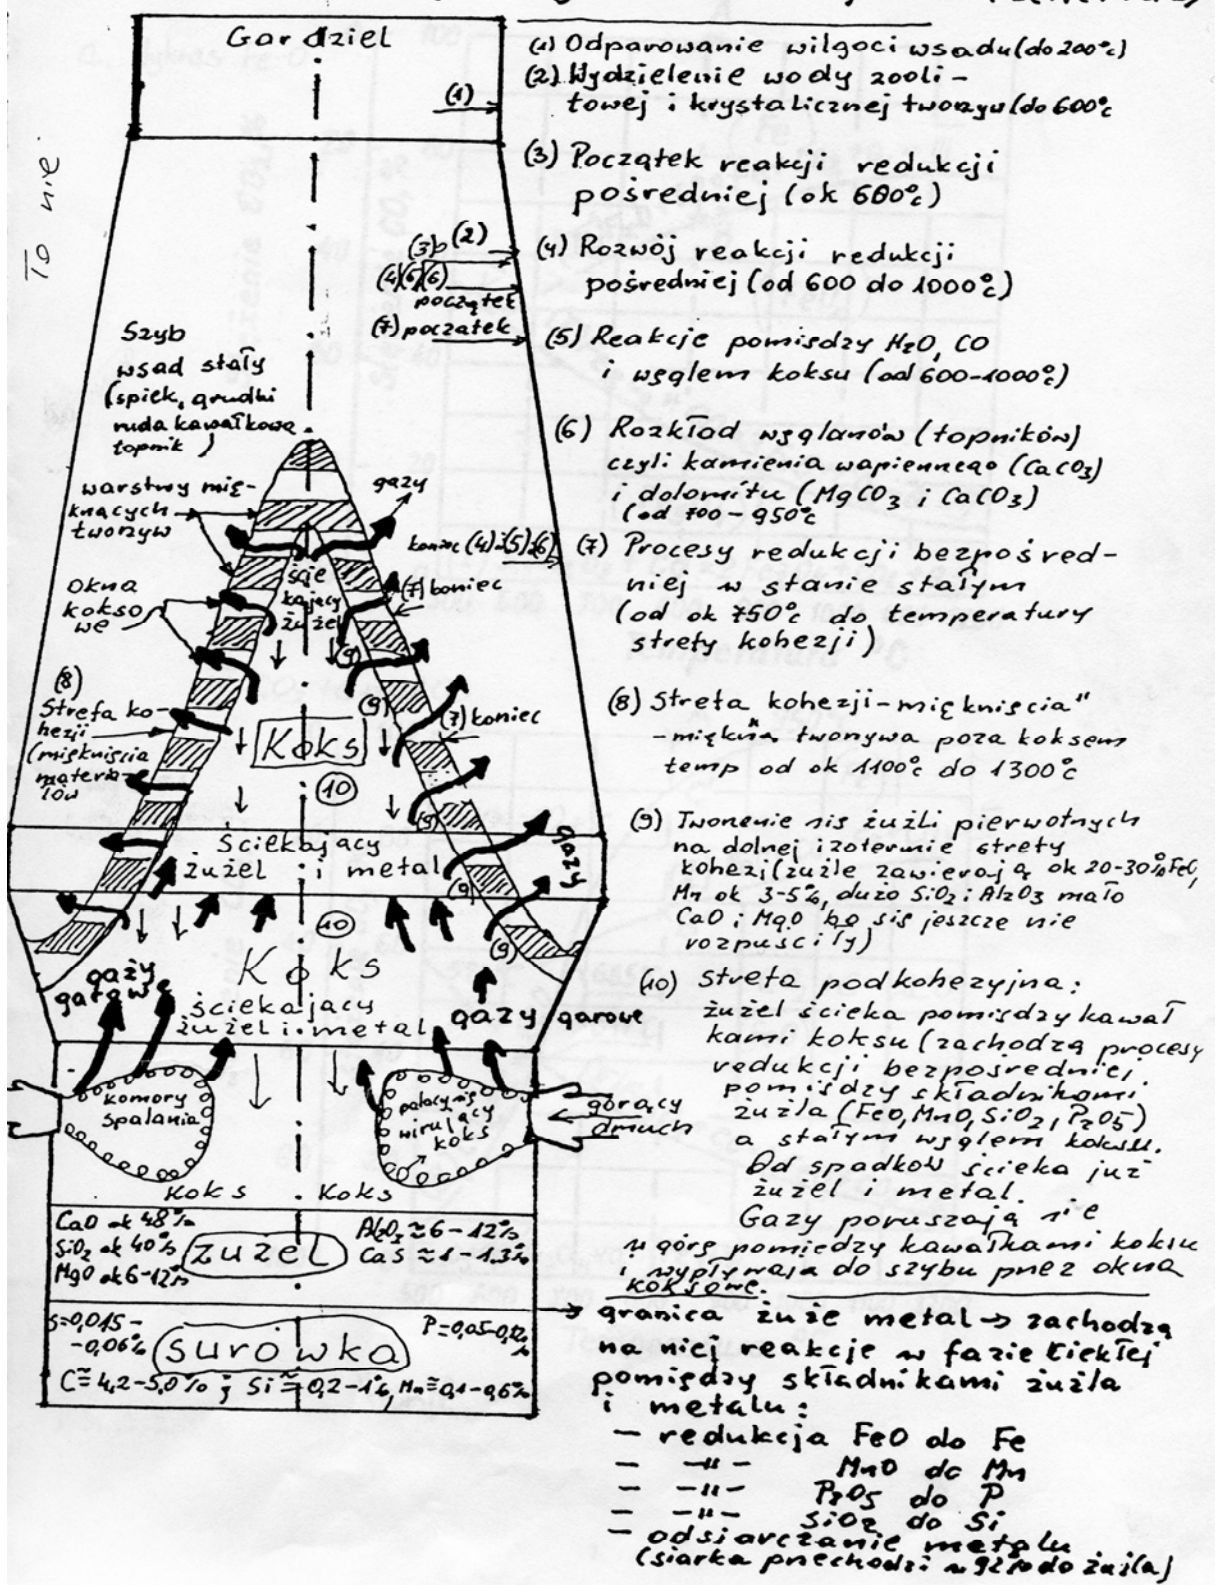 Gardziel
(1)
To nie
(3) (2)
(4)(5)(6)
początek
(7) początek
Szyb
wsad stały
(spiek, grudki
ruda kawałkowa
topnik)
warstwy mię-
knących
tworzyw
gazy
koniec (4) i (5) i (6)
okna
kokso
we
ście
kający
żużel
(7) koniec
(9)
(8)
Strefa ko-
hezji
(mięknięcia
materia-
łów
(9)
(7) koniec
Koks
(10)
(9)
Ściekajacy
żużel i metal
gazy
(9)
(10)
(9)
Koks
gazy
garowe
ściekajacy
żużel i metal
gazy garowe
komory
spalania
palący się
wirujący
koks
górący
dmuch
Koks Koks
CaO ok 48%
SiO2 ok 40%
MgO ok 6-12%
żużel
Al2O3 ≈ 6-12%
CaS ≈ 1-1.3%
S=0,015-
-0,06%
surówka
P=0,05-0,12%
C≅4,2-5,0%; Si≅0,2-1%, Mn≅0,1-0,6%
(1) Odparowanie wilgoci wsadu (do 200°c)
(2) Wydzielenie wody zooli-
towej i krystalicznej tworzyw (do 600°c
(3) Początek reakcji redukcji
pośredniej (ok 600°c)
(4) Rozwój reakcji redukcji
pośredniej (od 600 do 1000°c)
(5) Reakcje pomiędzy H2O, CO
i węglem koksu (od 600-1000°c)
(6) Rozkład węglanów (topników)
czyli kamienia wapiennego (CaCO3)
i dolomitu (MgCO3 i CaCO3)
(od 700-950°c
(7) Procesy redukcji bezpośred-
niej w stanie stałym
(od ok 750°c do temperatury
strefy kohezji)
(8) Strefa kohezji-mięknięcia"
-miękną tworzywa poza koksem
temp od ok 1100°c do 1300°c
(9) Tworzenie się żużli pierwotnych
na dolnej izotermie strefy
kohezj (żużle zawierają ok 20-30% FeO,
Mn ok 3-5%, dużo SiO2 i Al2O3 mało
CaO i MgO bo się jeszcze nie
rozpuściły)
(10) Strefa podkohezyjna:
żużel ścieka pomiędzy kawał
kami koksu (zachodzą procesy
redukcji bezpośredniej
pomiędzy składnikami
żużla (FeO, MnO, SiO2, P2O5)
a stałym węglem koksu.
Od spadków ścieka już
żużel i metal.
Gazy poruszają sie
w górę pomiędzy kawałkami koksu
i wypływają do szybu przez okna
koksowe.
granica żuże metal → zachodzą
na niej reakcje w fazie ciekłej
pomiędzy składnikami żużla
i metalu:
- redukcja FeO do Fe
- -"- MnO do Mn
- -"- P2O5 do P
- -"- SiO2 do Si
- odsiarczanie metalu
(siarka przechodzi w 92% do żużla)